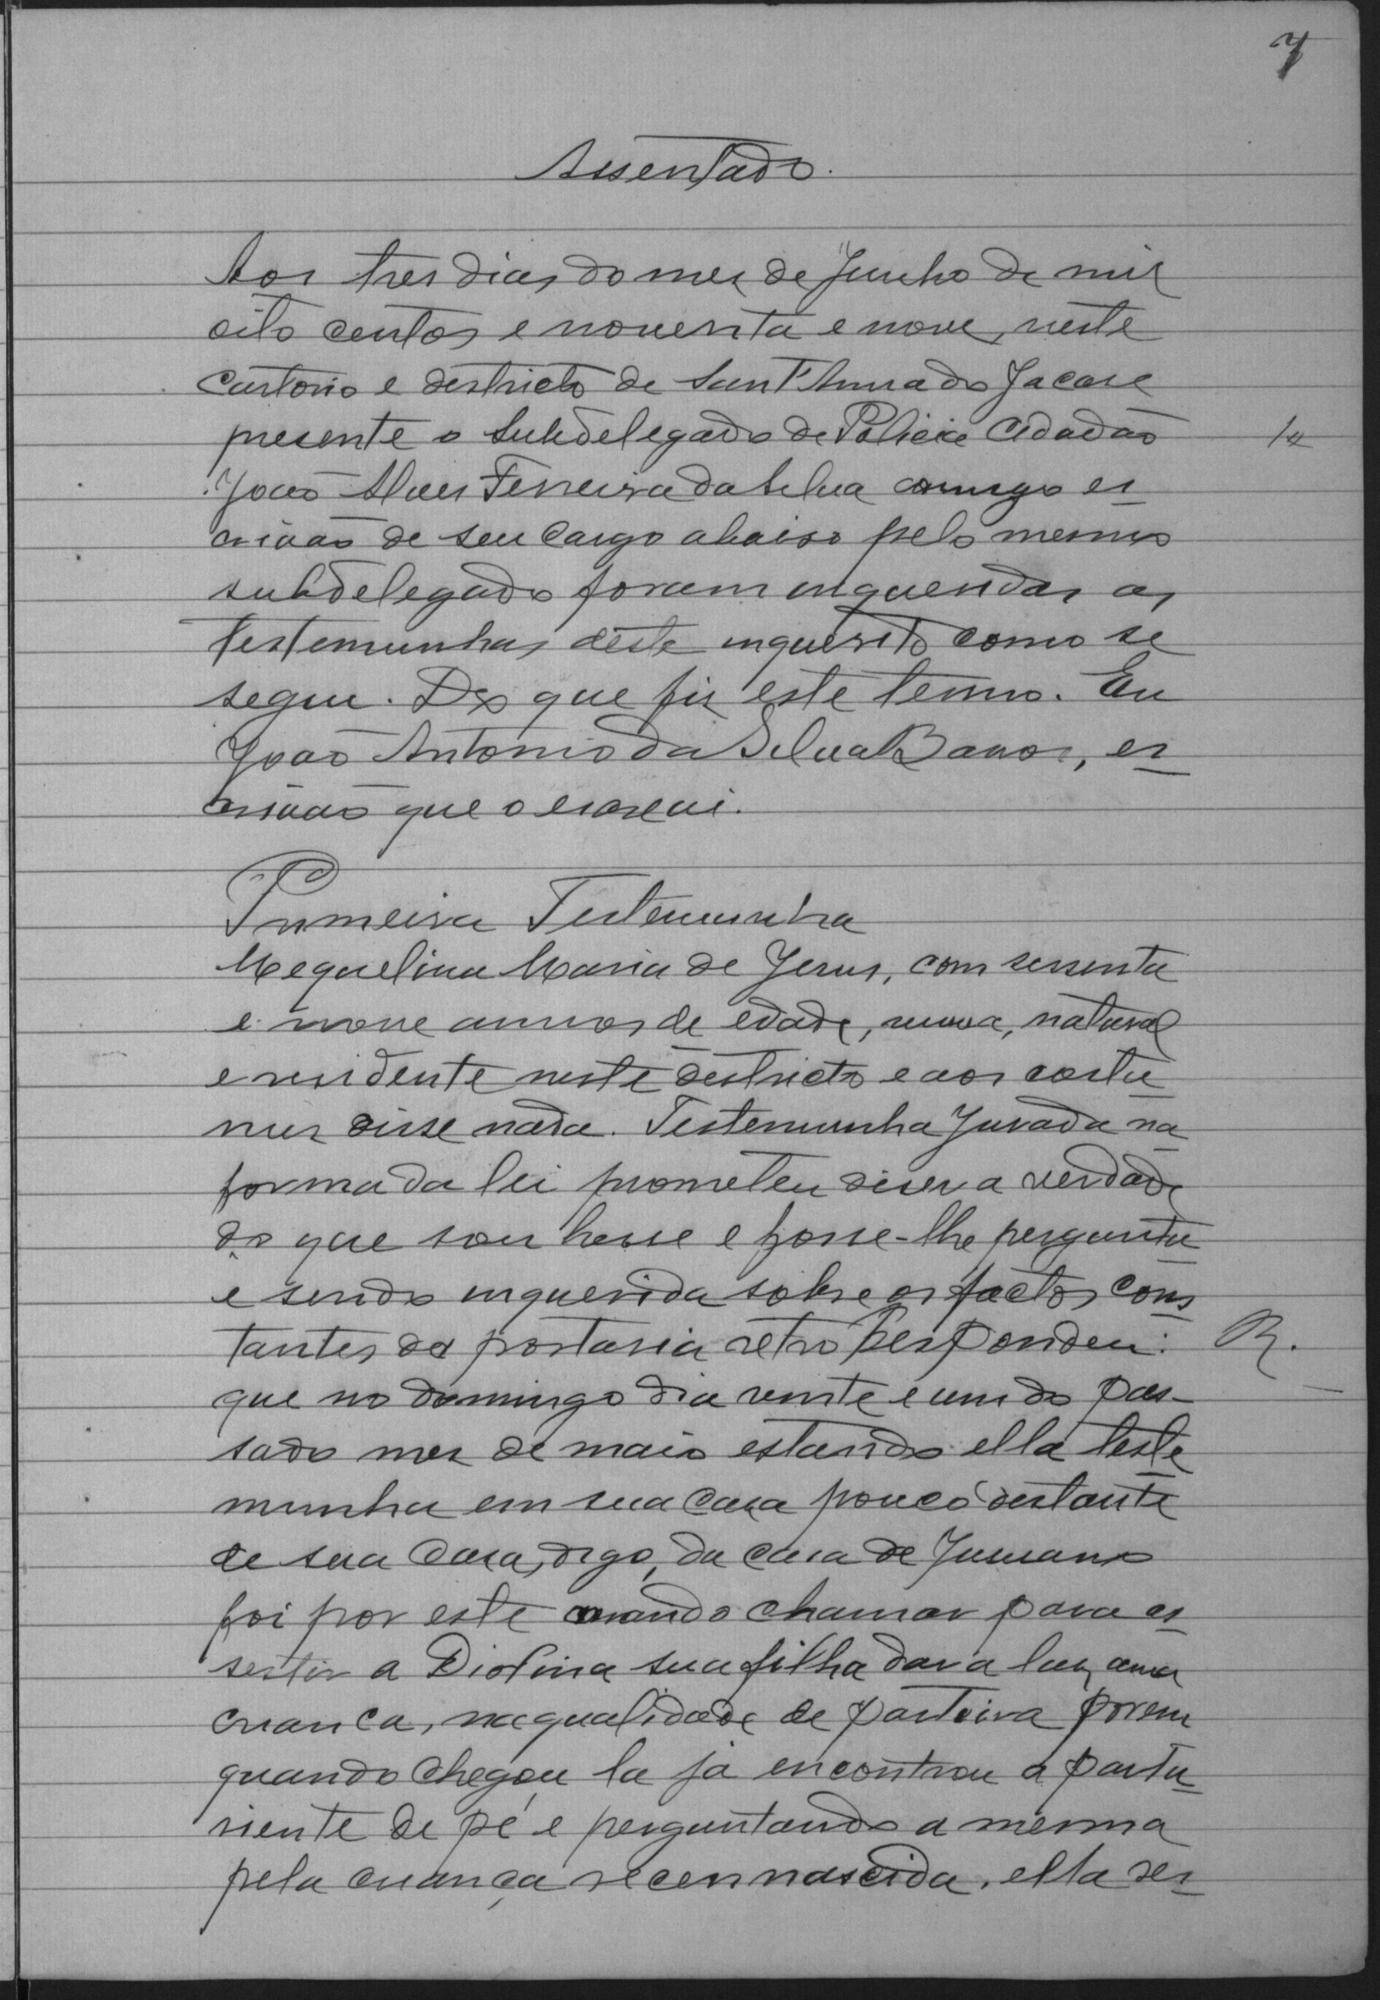 7
Assentado.
Aos tres dias do mes de Junho de mil
oito centos e noventa e nove, neste
Cartorio e destricto de Sant'Anna do Jacare
presente o Subdelegado de Policia Cidadão
João Alves Ferreira da Silva comigo es
crivão de seu cargo abaixo pelo mesmo
subdelegado foram inqueridas as
testemunhas deste inquerito como se
segue. Do que fiz este termo. Eu
João Antonio da Silva Barros, es
crivão que o escrevi.
Primeira Testemunha
Mequelina Maria de Jesus, com sessenta
e nove annos de edade, viuva, natural
e residente neste destricto e aos costu
mes disse nada. Testemunha Jurada na
forma da lei prometeu diser a verdade
do que sou besse e fosse-lhe pergunta
e sendo inquerida sobre os factos cons
tantes da portaria retro Respondeu:
R.
que no domingo dia vinte e um do pas-
sado mes de maio estando ella teste
munha em sua casa pouco destante
de sua Casa, digo, da casa de
foi por este mando chamar para as
sestir a Diolina sua filha dar a luz uma
crianca, na qualidade de parteira porem
quando chegou la já encontrou a partu
riente de pé e perguntando a mesma
pela criança recennascida, ella res